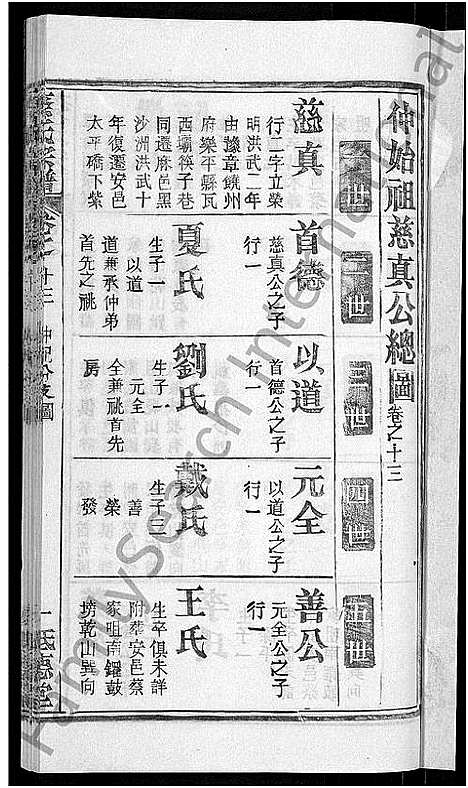 仲始祖慈真公總圖卷之十三
二世
三世
四世
五世
慈真
行二字立榮
明洪武二年
由豫章饒州
府樂平縣瓦
西壩筷子巷
同遷麻邑黑
沙洲洪武十
年復遷安邑
太平礄下紫
首德
慈真公之子
行一
夏氏
生子一
以道
道兼承仲弟
首先之祧
以道
首德公之子
行一
劉氏
生子一
元全
全兼祧首先
房
元全
以道公之子
行一
戴氏
生子三
善
榮
發
善公
元全公之子
行一
王氏
生卒俱未詳
附葬安邑蔡
家咀南鑼鼓
塝乾山巽向
十三
FamilySearch International